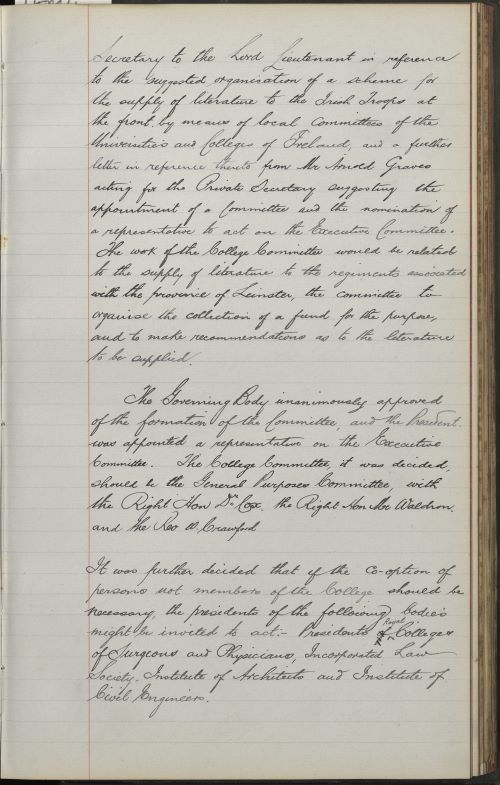 Secretary to the Lord Lieutenant in reference
to the suggested organisation of a scheme for
the supply of literature to the Irish Troops at
the front by means of local Committees of the
Universities and Colleges of Ireland, and a further
letter in reference thereto from Mr Arnold Graves
acting for the Private Secretary suggesting the
appointment of a Committee and the nomination of
a representative to act on the Executive Committee.
The work of the College Committee would be related
to the supply of literature to the regiments associated
with the province of Leinster, the committee to
organise the collection of a fund for the purpose,
and to make recommendations as to the literature
to be supplied.
The Governing Body unanimously approved
of the formation of the Committee, and the President
was appointed a representative on the Executive
Committee. The College Committee, it was decided,
should be the General Purposes Committee, with
the Right Hon Dr Cox, the Right Hon Mr Waldron,
and the Rev W. Crawford
It was further decided that if the co-option of
persons not members of the College should be
necessary, the presidents of the following bodies
might be invited to act:- Presidents of Royal Colleges
of Surgeons and Physicians, Incorporated Law
Society, Institute of Architects and Institute of
Civil Engineers.